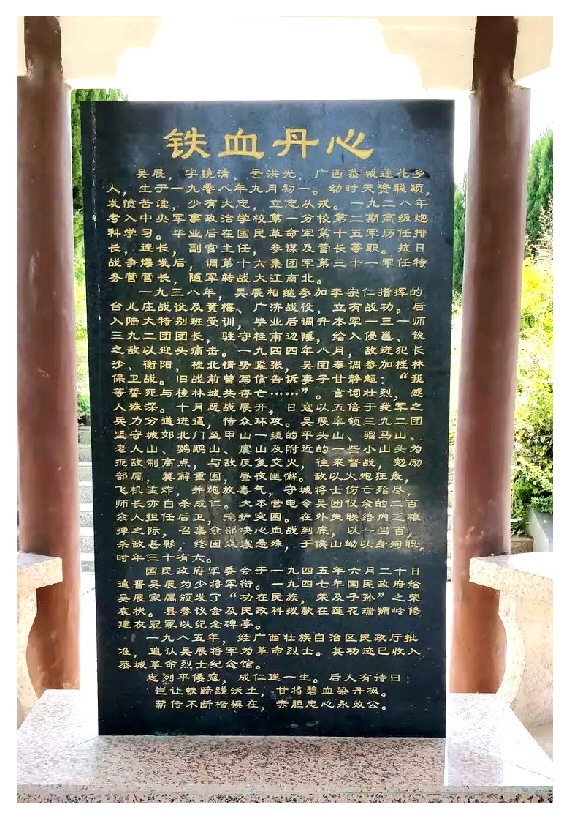 铁血丹心
吴展，字镜清，号洪光，广西恭城莲花乡
人，生于一九零八年九月初一。幼时天资聪颖，
发愤苦读，少有大志，立志从戎。一九二八年
考入中央军事政治学校第一分校第二期高级炮
科学习。毕业后在国民革命军第十五军历任排
长，连长，副官主任，参谋及营长等职。抗日
战争爆发后，调第十六集团军第三十一军任特
务营营长，随军转战大江南北。
一九三八年，吴展相继参加李宗仁指挥的
台儿庄战役及黄梅、广济战役，立有战功。后
入陆大特别班受训，毕业后调升本军一三一师
三九二团团长，驻守桂南边陲，给入侵邕、钦
之敌以迎头痛击。一九四四年八月，敌进犯长
沙、衡阳，桂北情势紧张，吴团奉调参加桂林
保卫战。旧战前曾写信告诉妻子甘静超：“我
等誓死与桂林城共存亡……”。言词壮烈，感
人殊深。十月恶战展开，日寇以五倍于我军之
兵力分道进逼，恃众环攻。吴展率领三九二团
坚守城郊北门至甲山一线的平头山、骝马山、
老人山、鹦鹉山、虞山及附近的一些小山头为
死敌制高点，与敌反复交火，往来督战，勉励
部属，冀解重围，昼夜继懈。敌以火炮狂轰，
飞机猛炸，并施放毒气，守城将士伤亡殆尽，
师长亦自杀成仁。大本营电令吴团仅余的二百
余人担任后卫，掩护突围。在外失联络内乏粮
弹之际，召集余部决心血战到底，以一当百，
杀敌甚夥，终因众寡悬殊，于溪山坳以身殉职，
时年三十有六。
国民政府军委会于一九四五年六月二十日
追晋吴展为少将军衔。一九四七年国民政府给
吴展家属颁发了“功在民族，荣及子孙”之荣
哀状。县参议会及民政科拨款在莲花瑞狮岭修
建衣冠冢以纪念碑亭。
一九八五年，经广西壮族自治区民政厅批
准，追认吴展将军为革命烈士。其功迹已收入
恭城革命烈士纪念馆。
忠列平倭寇，成仁继一生。后人有诗曰：
岂让铁蹄蹂沃土，甘将碧血染丹枫。
薪传不断楷模在，赤胆忠心永效公。